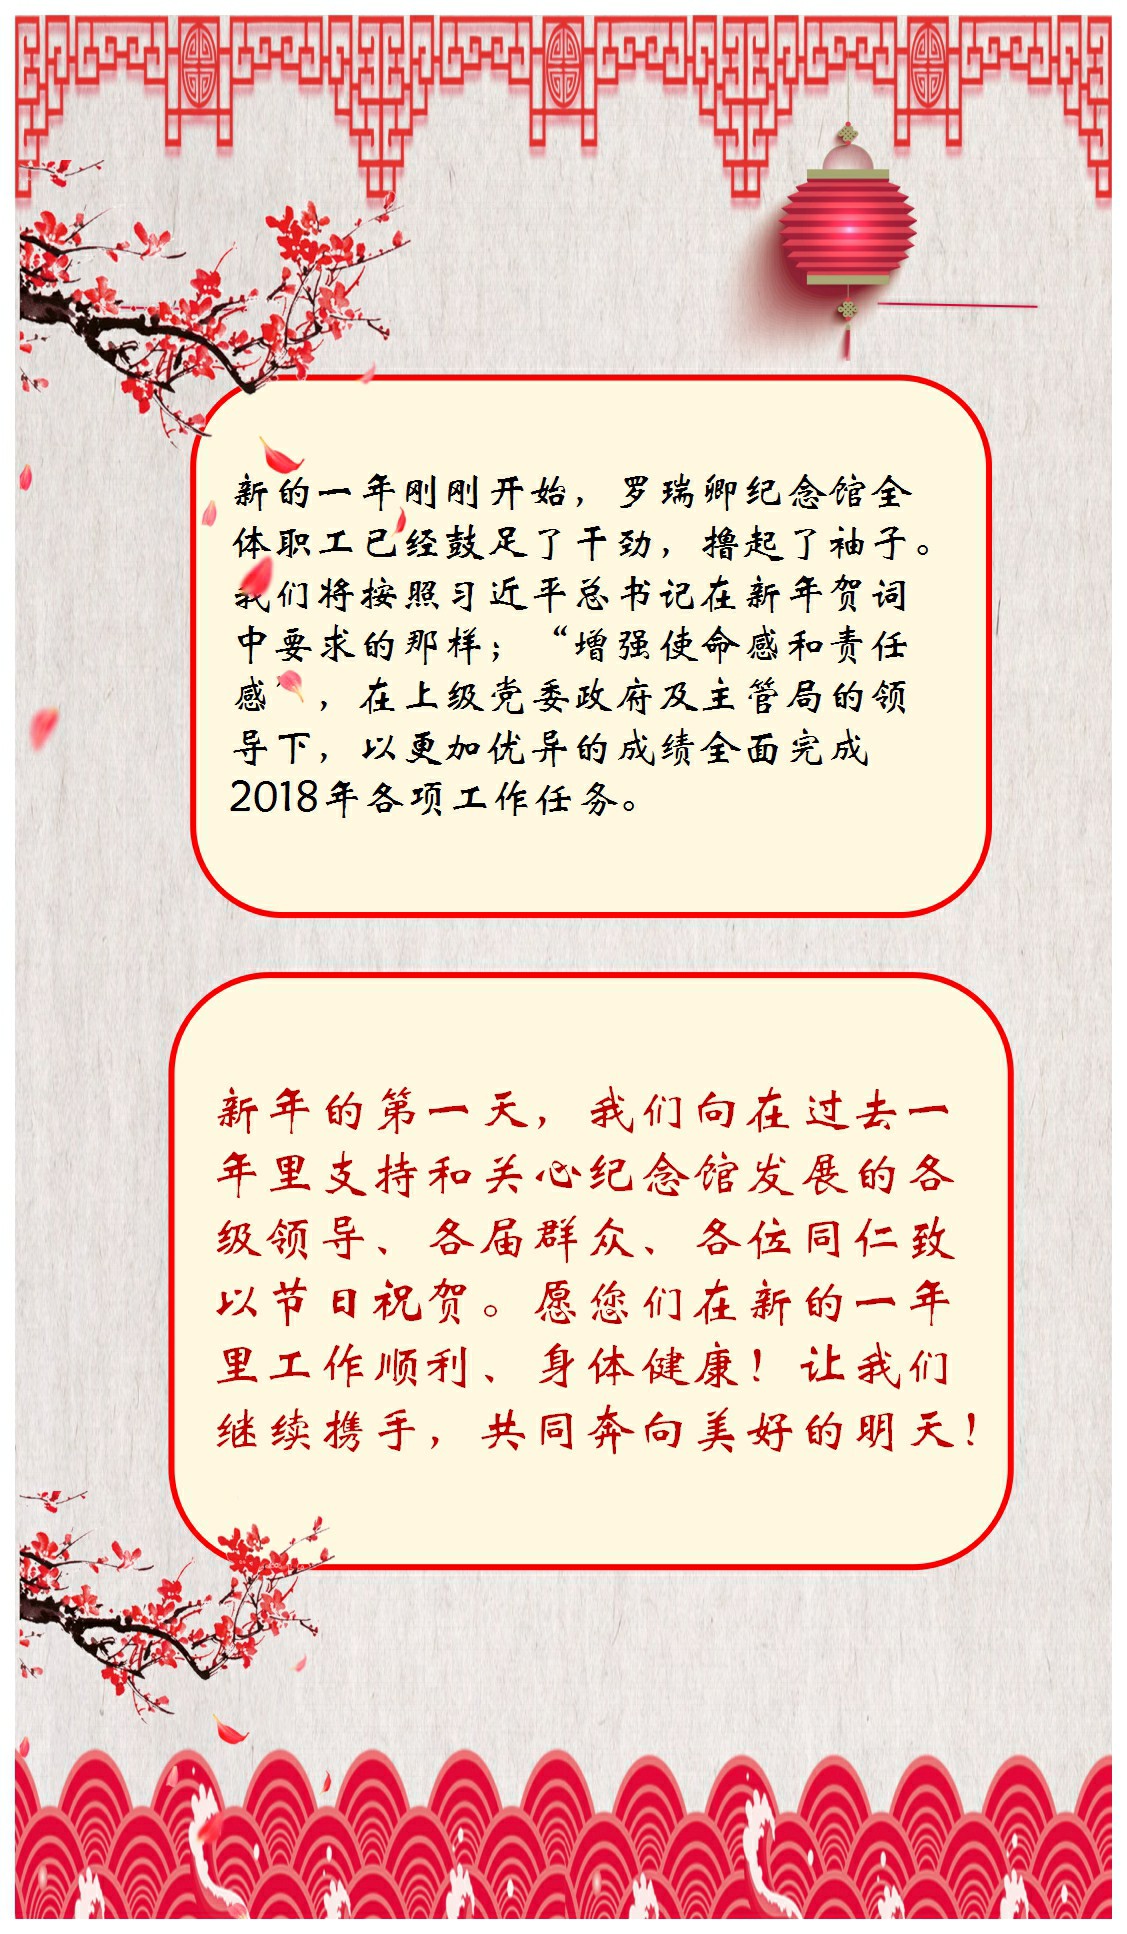 新的一年刚刚开始，罗瑞卿纪念馆全
体职工已经鼓足了干劲，撸起了袖子。
我们将按照习近平总书记在新年贺词
中要求的那样；“增强使命感和责任
感”，在上级党委政府及主管局的领
导下，以更加优异的成绩全面完成
2018年各项工作任务。
新年的第一天，我们向在过去一
年里支持和关心纪念馆发展的各
级领导、各届群众、各位同仁致
以节日祝贺。愿您们在新的一年
里工作顺利、身体健康！让我们
继续携手，共同奔向美好的明天！